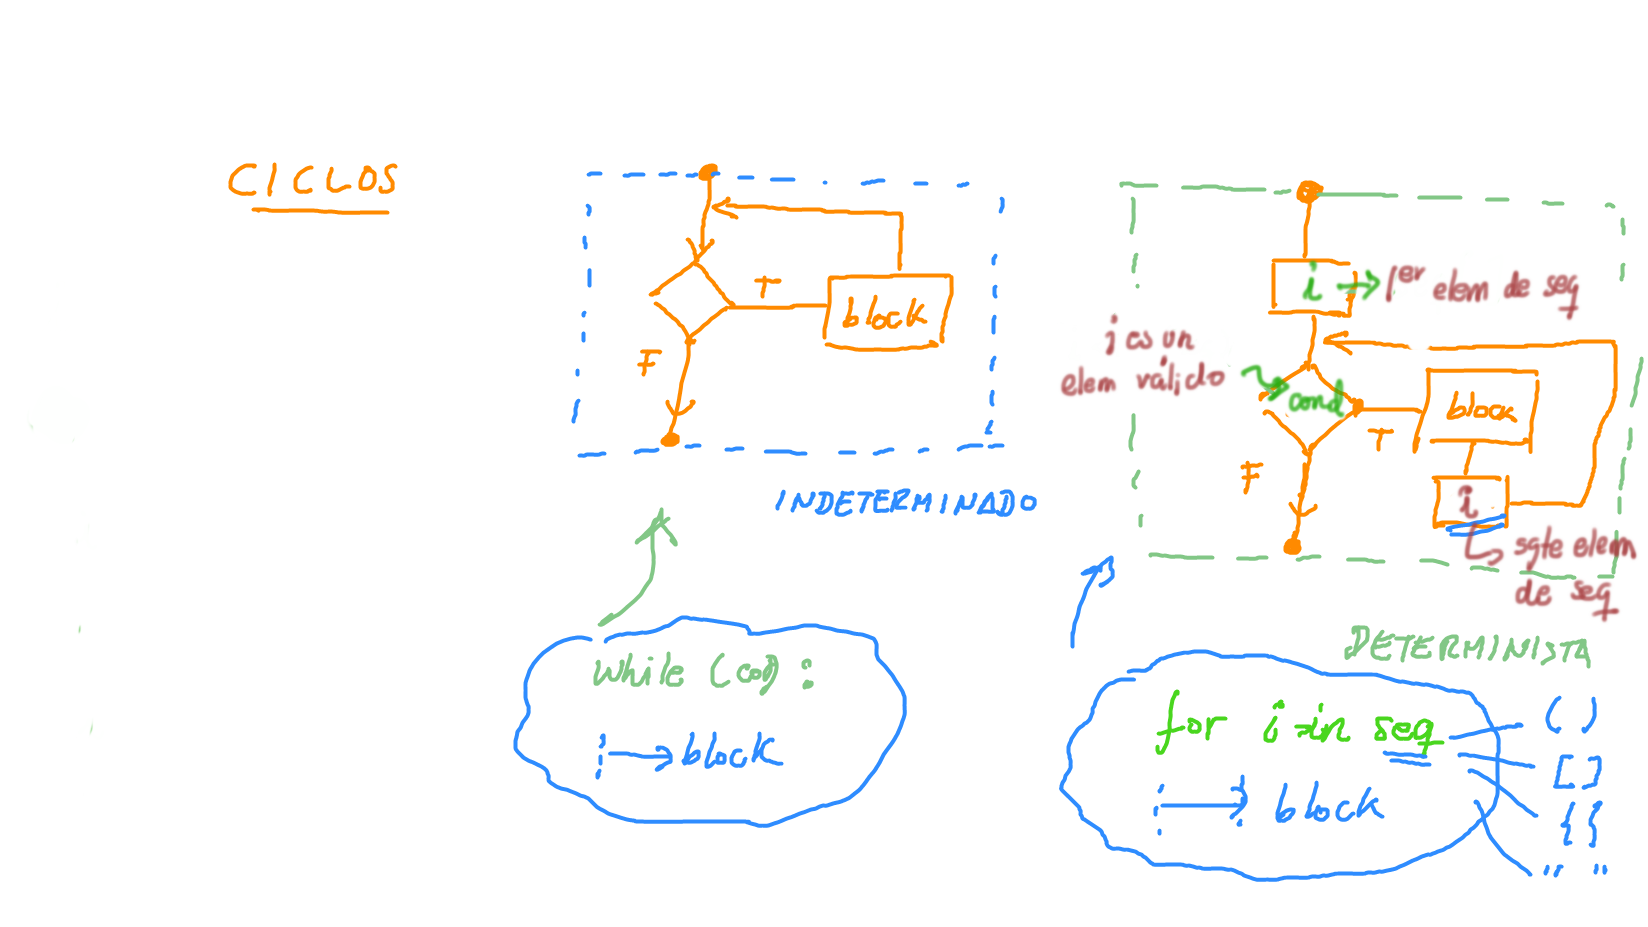 CICLOS
T
block
F
INDETERMINADO
while (      ):
block
i
1er elem de seq
i es un
elem válido
cond
T
block
F
i
sgte elem
de seq
DETERMINISTA
for i in seq
block
( )
[ ]
{ {
" "